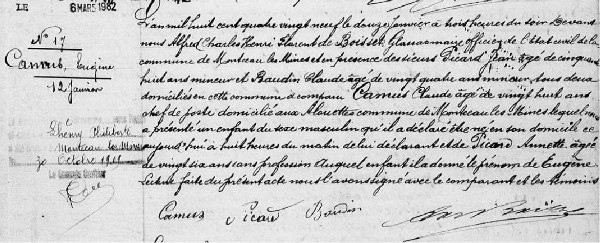 LE
6 MARS 1982
N° 17
Camus, Eugène
12 Janvier
L'an mil huit cent quatre vingt neuf le douze Janvier à trois heures du soir Devant
nous Alfred Charles Henri Florent de Boisset, officier de l'Etat civil de la
commune de Montceau les Mines et en présence des sieurs Picard Jean âgé de cinquante
huit ans mineur et Baudin Claude âgé de vingt quatre ans mineur tous deux
domiciliés en cette commune a comparu Camus Claude âgé de vingt huit ans
chef de poste domicilié aux Alouettes commune de Montceau les Mines lequel nous
a présenté un enfant du sexe masculin qu'il a déclaré être né en son domicile ce
aujourd'hui à huit heures du matin de lui déclarant et de Picard Annette âgée
de vingt six ans sans profession Auquel enfant il a donné le prénom de Eugène
Lecture faite du présent acte nous l'avons signé avec le comparant et les témoins
Philiberte
Montceau les Mines
30 Octobre
Camus Picard Baudin